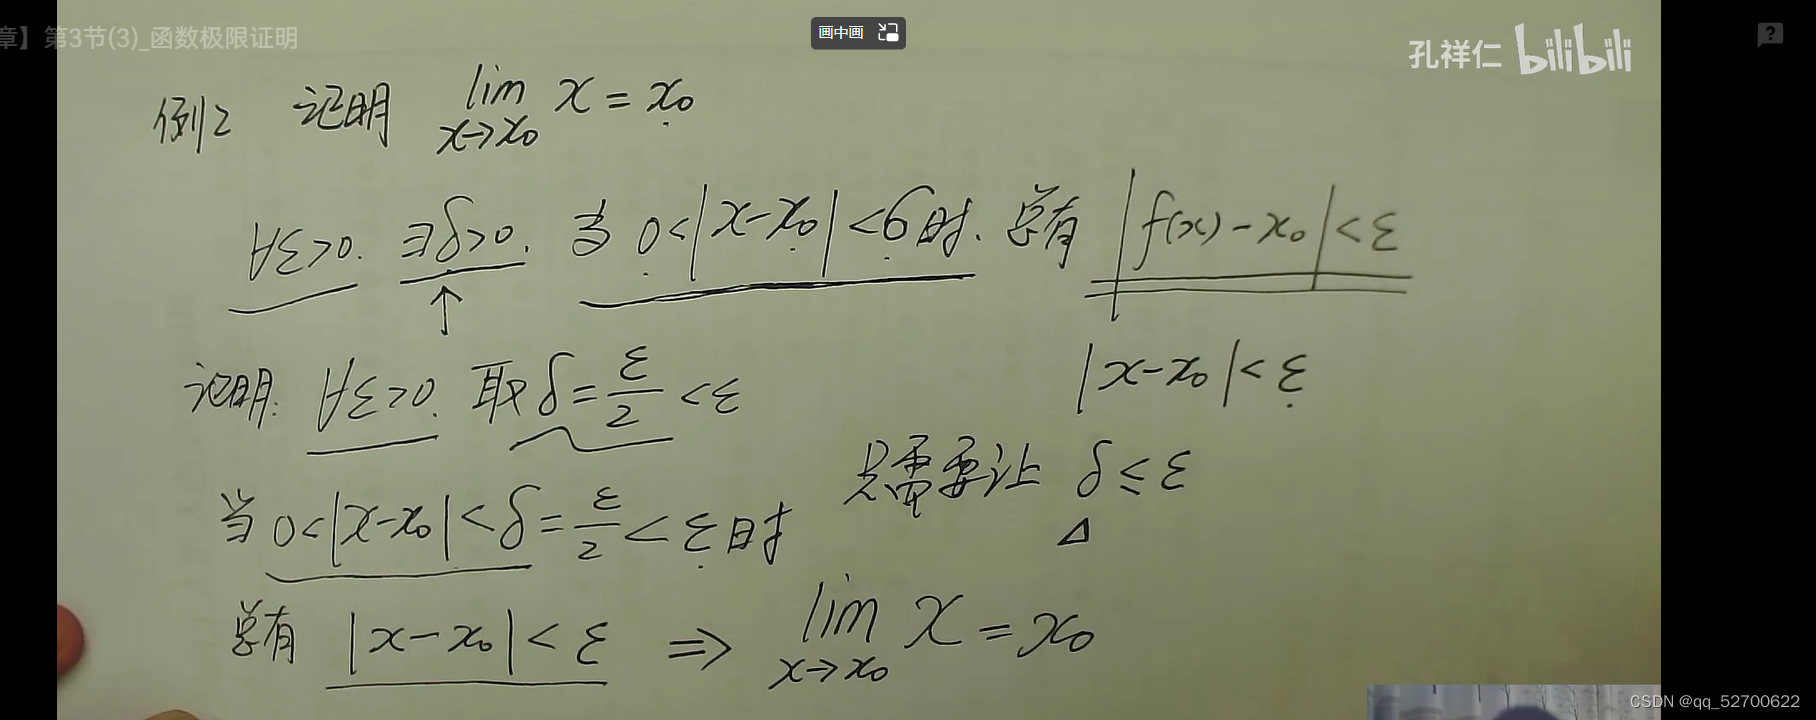 章】第3节(3)_函数极限证明
画中画
?
孔祥仁 bilibili
例2 证明 lim x = x₀
x→x₀
∀ε>0. ∃δ>0. 当 0<|x-x₀|<δ时. 总有 |f(x)-x₀|<ε
↑
|x-x₀|<ε
证明: ∀ε>0. 取δ=ε/2<ε
只需要让 δ≤ε
△
当 0<|x-x₀|<δ=ε/2<ε时
总有 |x-x₀|<ε ⇒ lim x = x₀
x→x₀
CSDN @qq_52700622